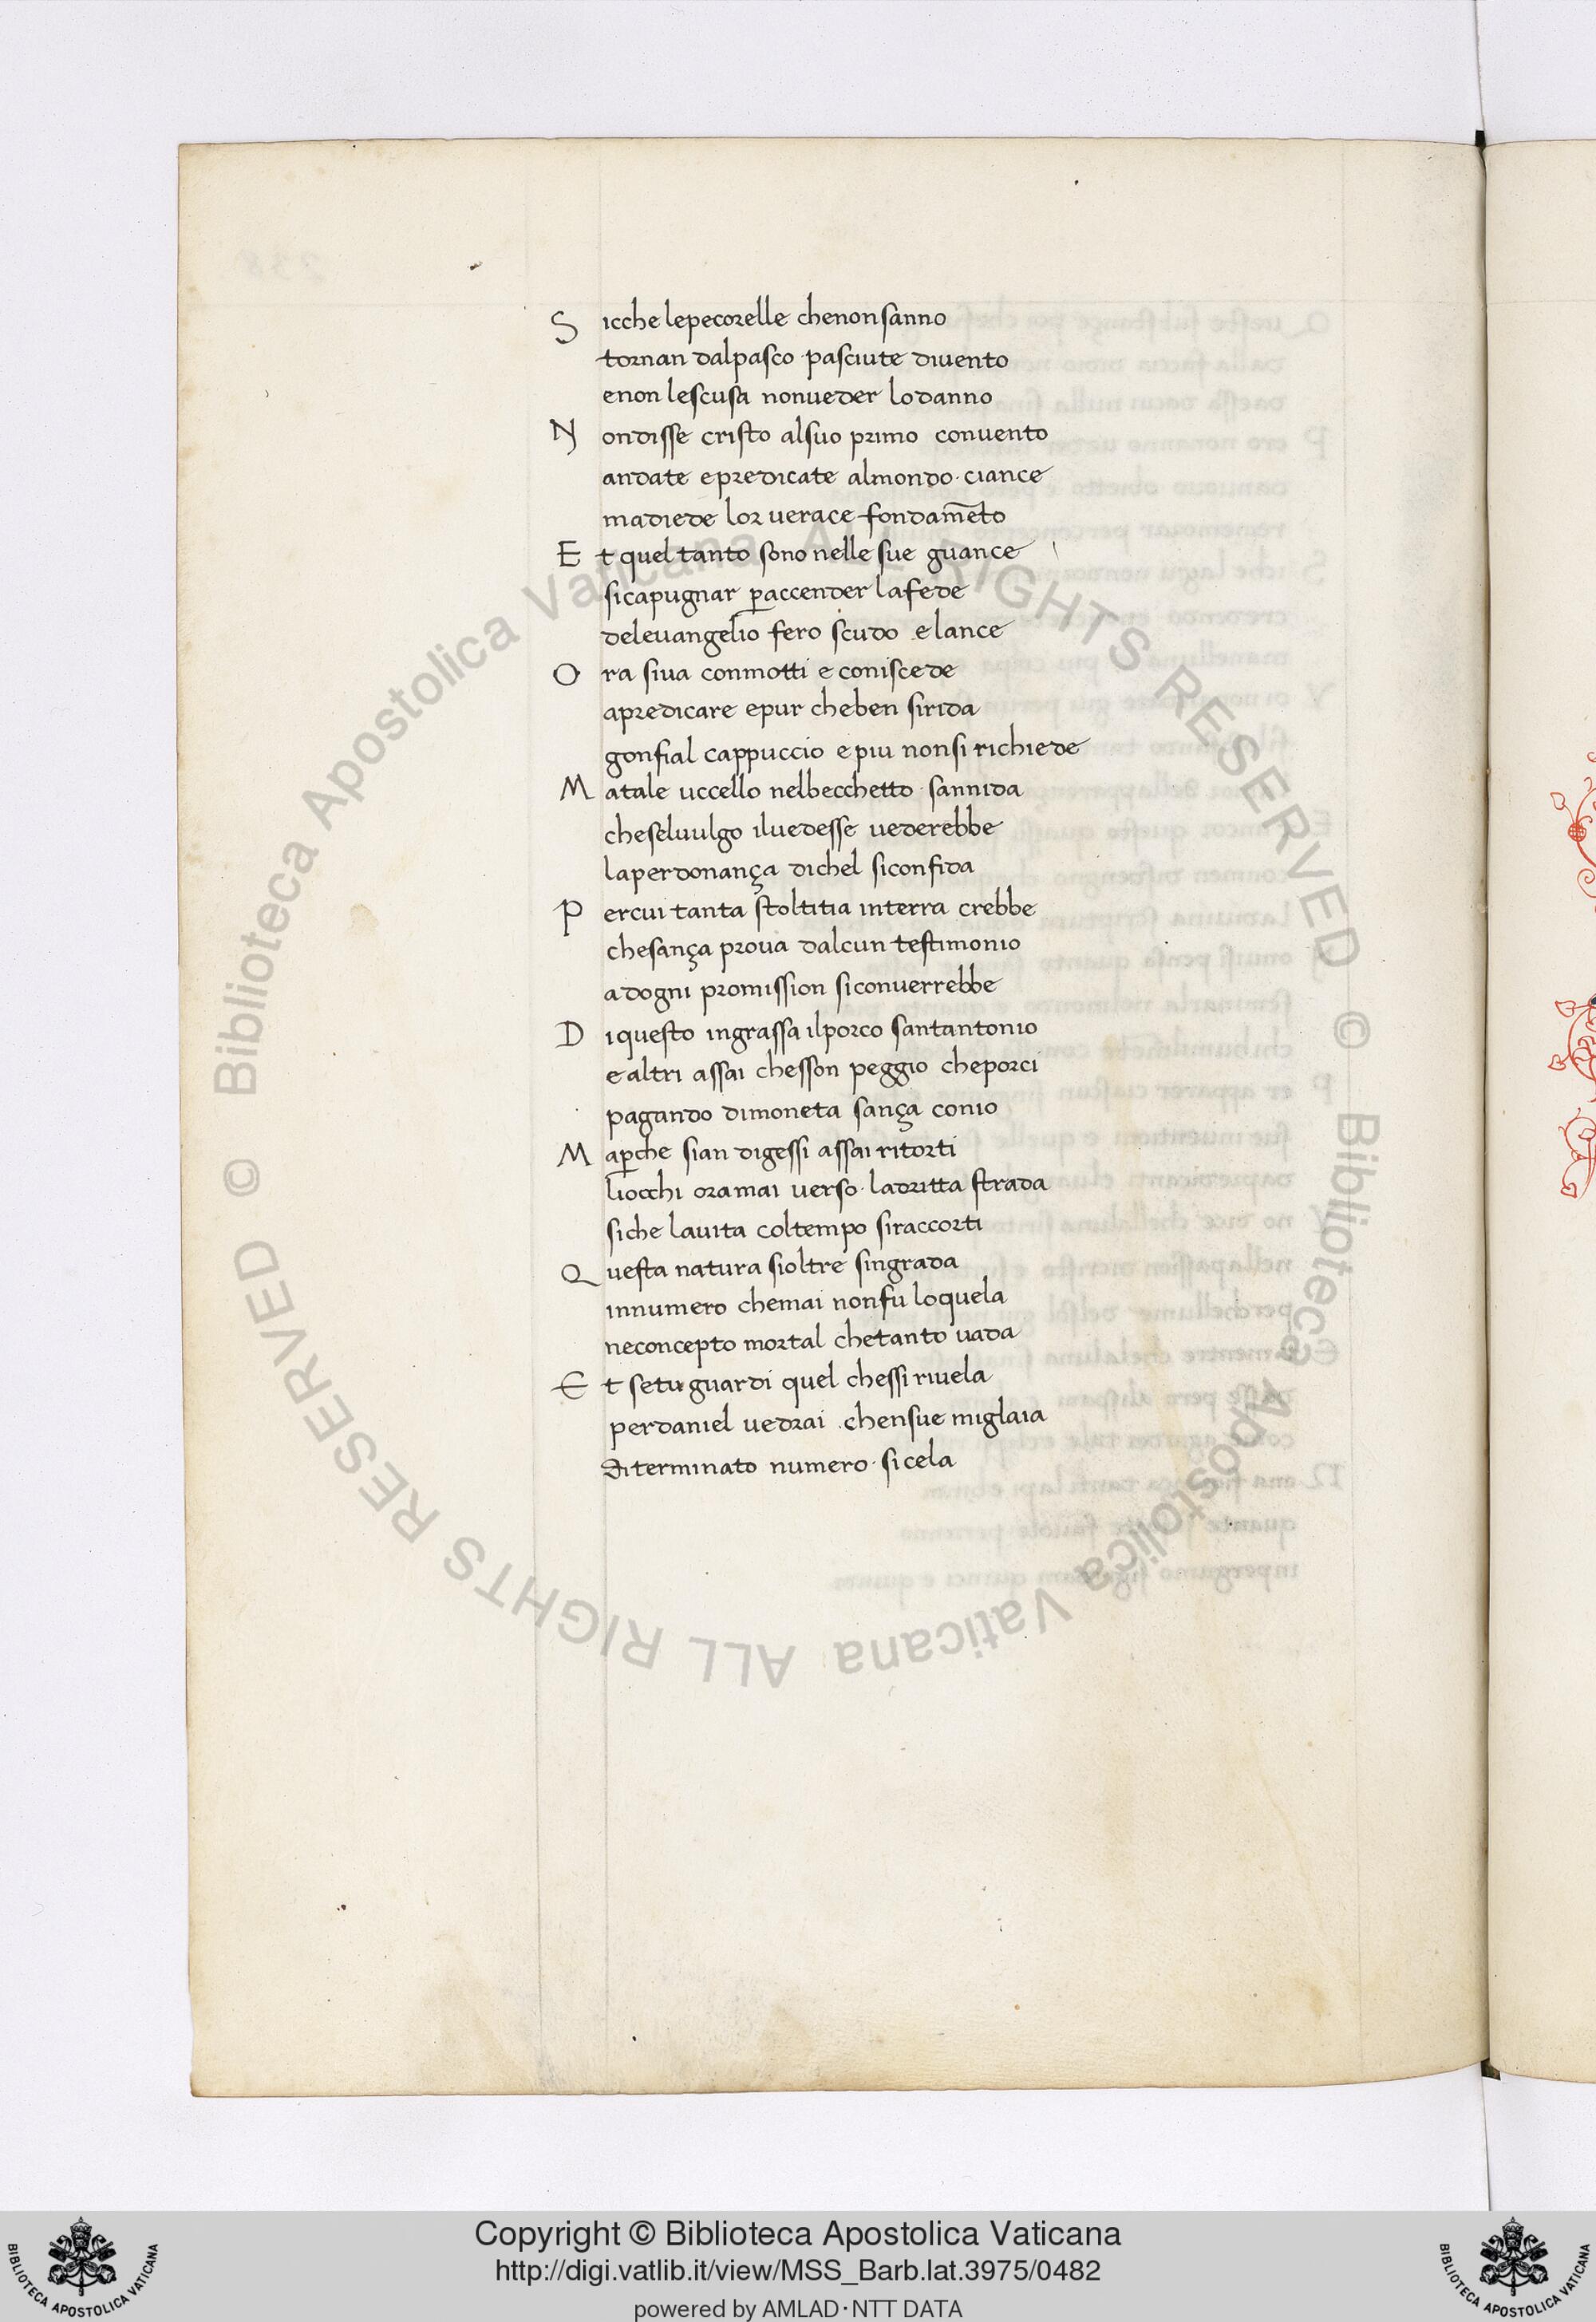 S icche lepecorelle chenonsanno
tornan dalpasco · pasciute divento
enon lescusa nonueder lodanno
N ondisse cristo alsuo primo convento
andate epredicate almondo · ciance
madiede lor verace fondam̅eto
E t quel tanto sono nelle sue guance
sicapugnar ꝑaccender lafede
deleuangelio fero scudo e lance
O ra siua conmotti e coniscede
apredicare epur cheben sirida
gonfial cappuccio epiu nonsi richiede
M atale uccello nelbecchetto · sannida
cheseluulgo iluedesse uederebbe
laperdonança dichel siconfida
P ercui tanta stoltitia interra crebbe
chesança proua dalcun testimonio
adogni promission siconuerrebbe
D iquesto ingrassa ilporco santantonio
e altri assai chesson peggio cheporci
pagando dimoneta sança conio
M aꝑche sian digessi assai ritorti
liocchi oramai verso · ladritta strada
siche lauita coltempo siraccorti
Q uesta natura sioltre singrada
innumero chemai nonfu loquela
neconcepto mortal chetanto uada
E t setu guardi quel chessi riuela
perdaniel uedrai · chensue miglaia
diterminato numero · sicela
© Biblioteca Apostolica Vaticana ALL RIGHTS RESERVED © Biblioteca Apostolica Vaticana ALL RIGHTS RESERVED
Copyright © Biblioteca Apostolica Vaticana
http://digi.vatlib.it/view/MSS_Barb.lat.3975/0482
powered by AMLAD·NTT DATA
BIBLIOTECA APOSTOLICA VATICANA
BIBLIOTECA APOSTOLICA VATICANA